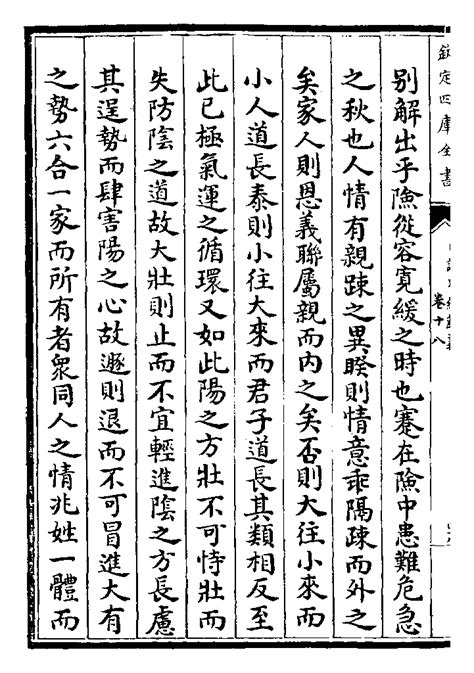 欽定四庫全書
卷十八
別解出乎險從容寛緩之時也蹇在險中患難危急
之秋也人情有親踈之異睽則情意乖隔踈而外之
矣家人則恩義聯屬親而内之矣否則大往小來而
小人道長泰則小往大來而君子道長其類相反至
此已極氣運之循環又如此陽之方壯不可恃壯而
失防陰之道故大壯則止而不宜輕進陰之方長慮
其逞勢而肆害陽之心故遯則退而不可冒進大有
之勢六合一家而所有者衆同人之情兆姓一體而